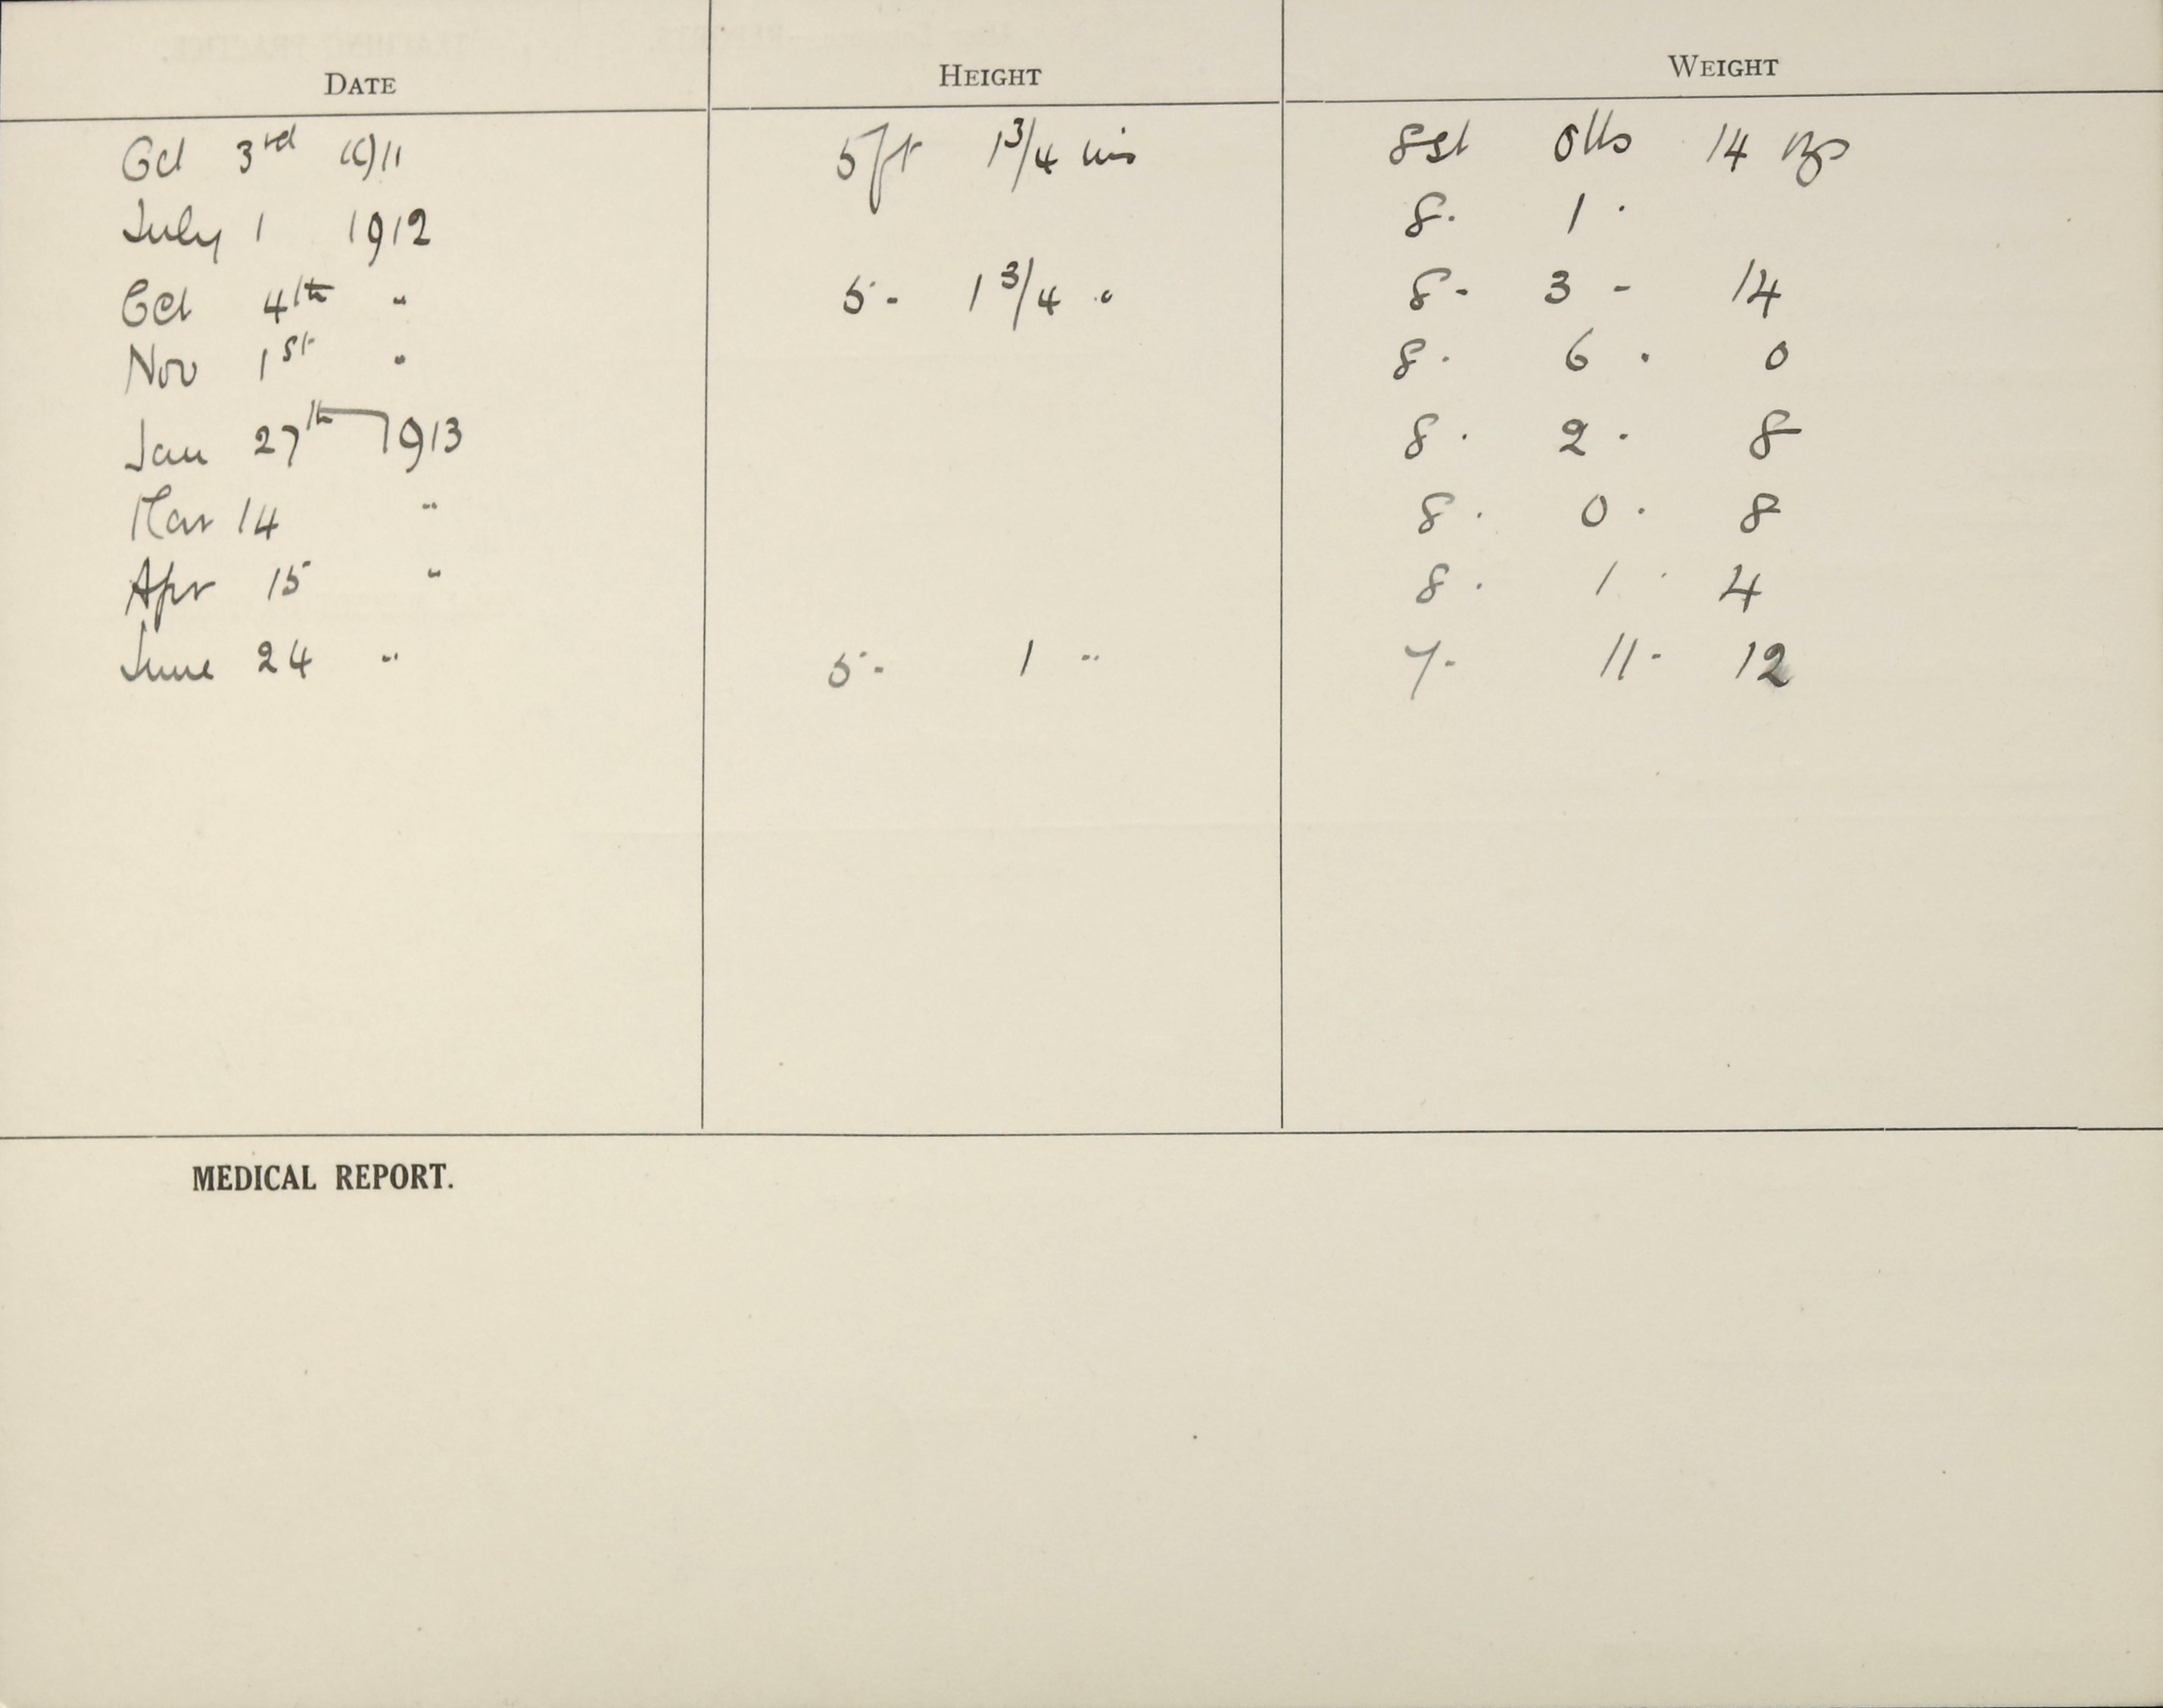 DATE HEIGHT WEIGHT
Oct 3rd 1911 5ft 1 3/4 ins 8st 0lbs 14 ozs
July 1 1912 8. 1.
Oct 4th " 5 - 1 3/4 " 8 - 3 - 14
Nov 1st " 8. 6. 0
Jan 27th 1913 8. 2. 8
Mar 14 " 8. 0. 8
Apr 15 " 8. 1. 4
June 24 " 5 - 1 " 7 - 11 - 12
MEDICAL REPORT.